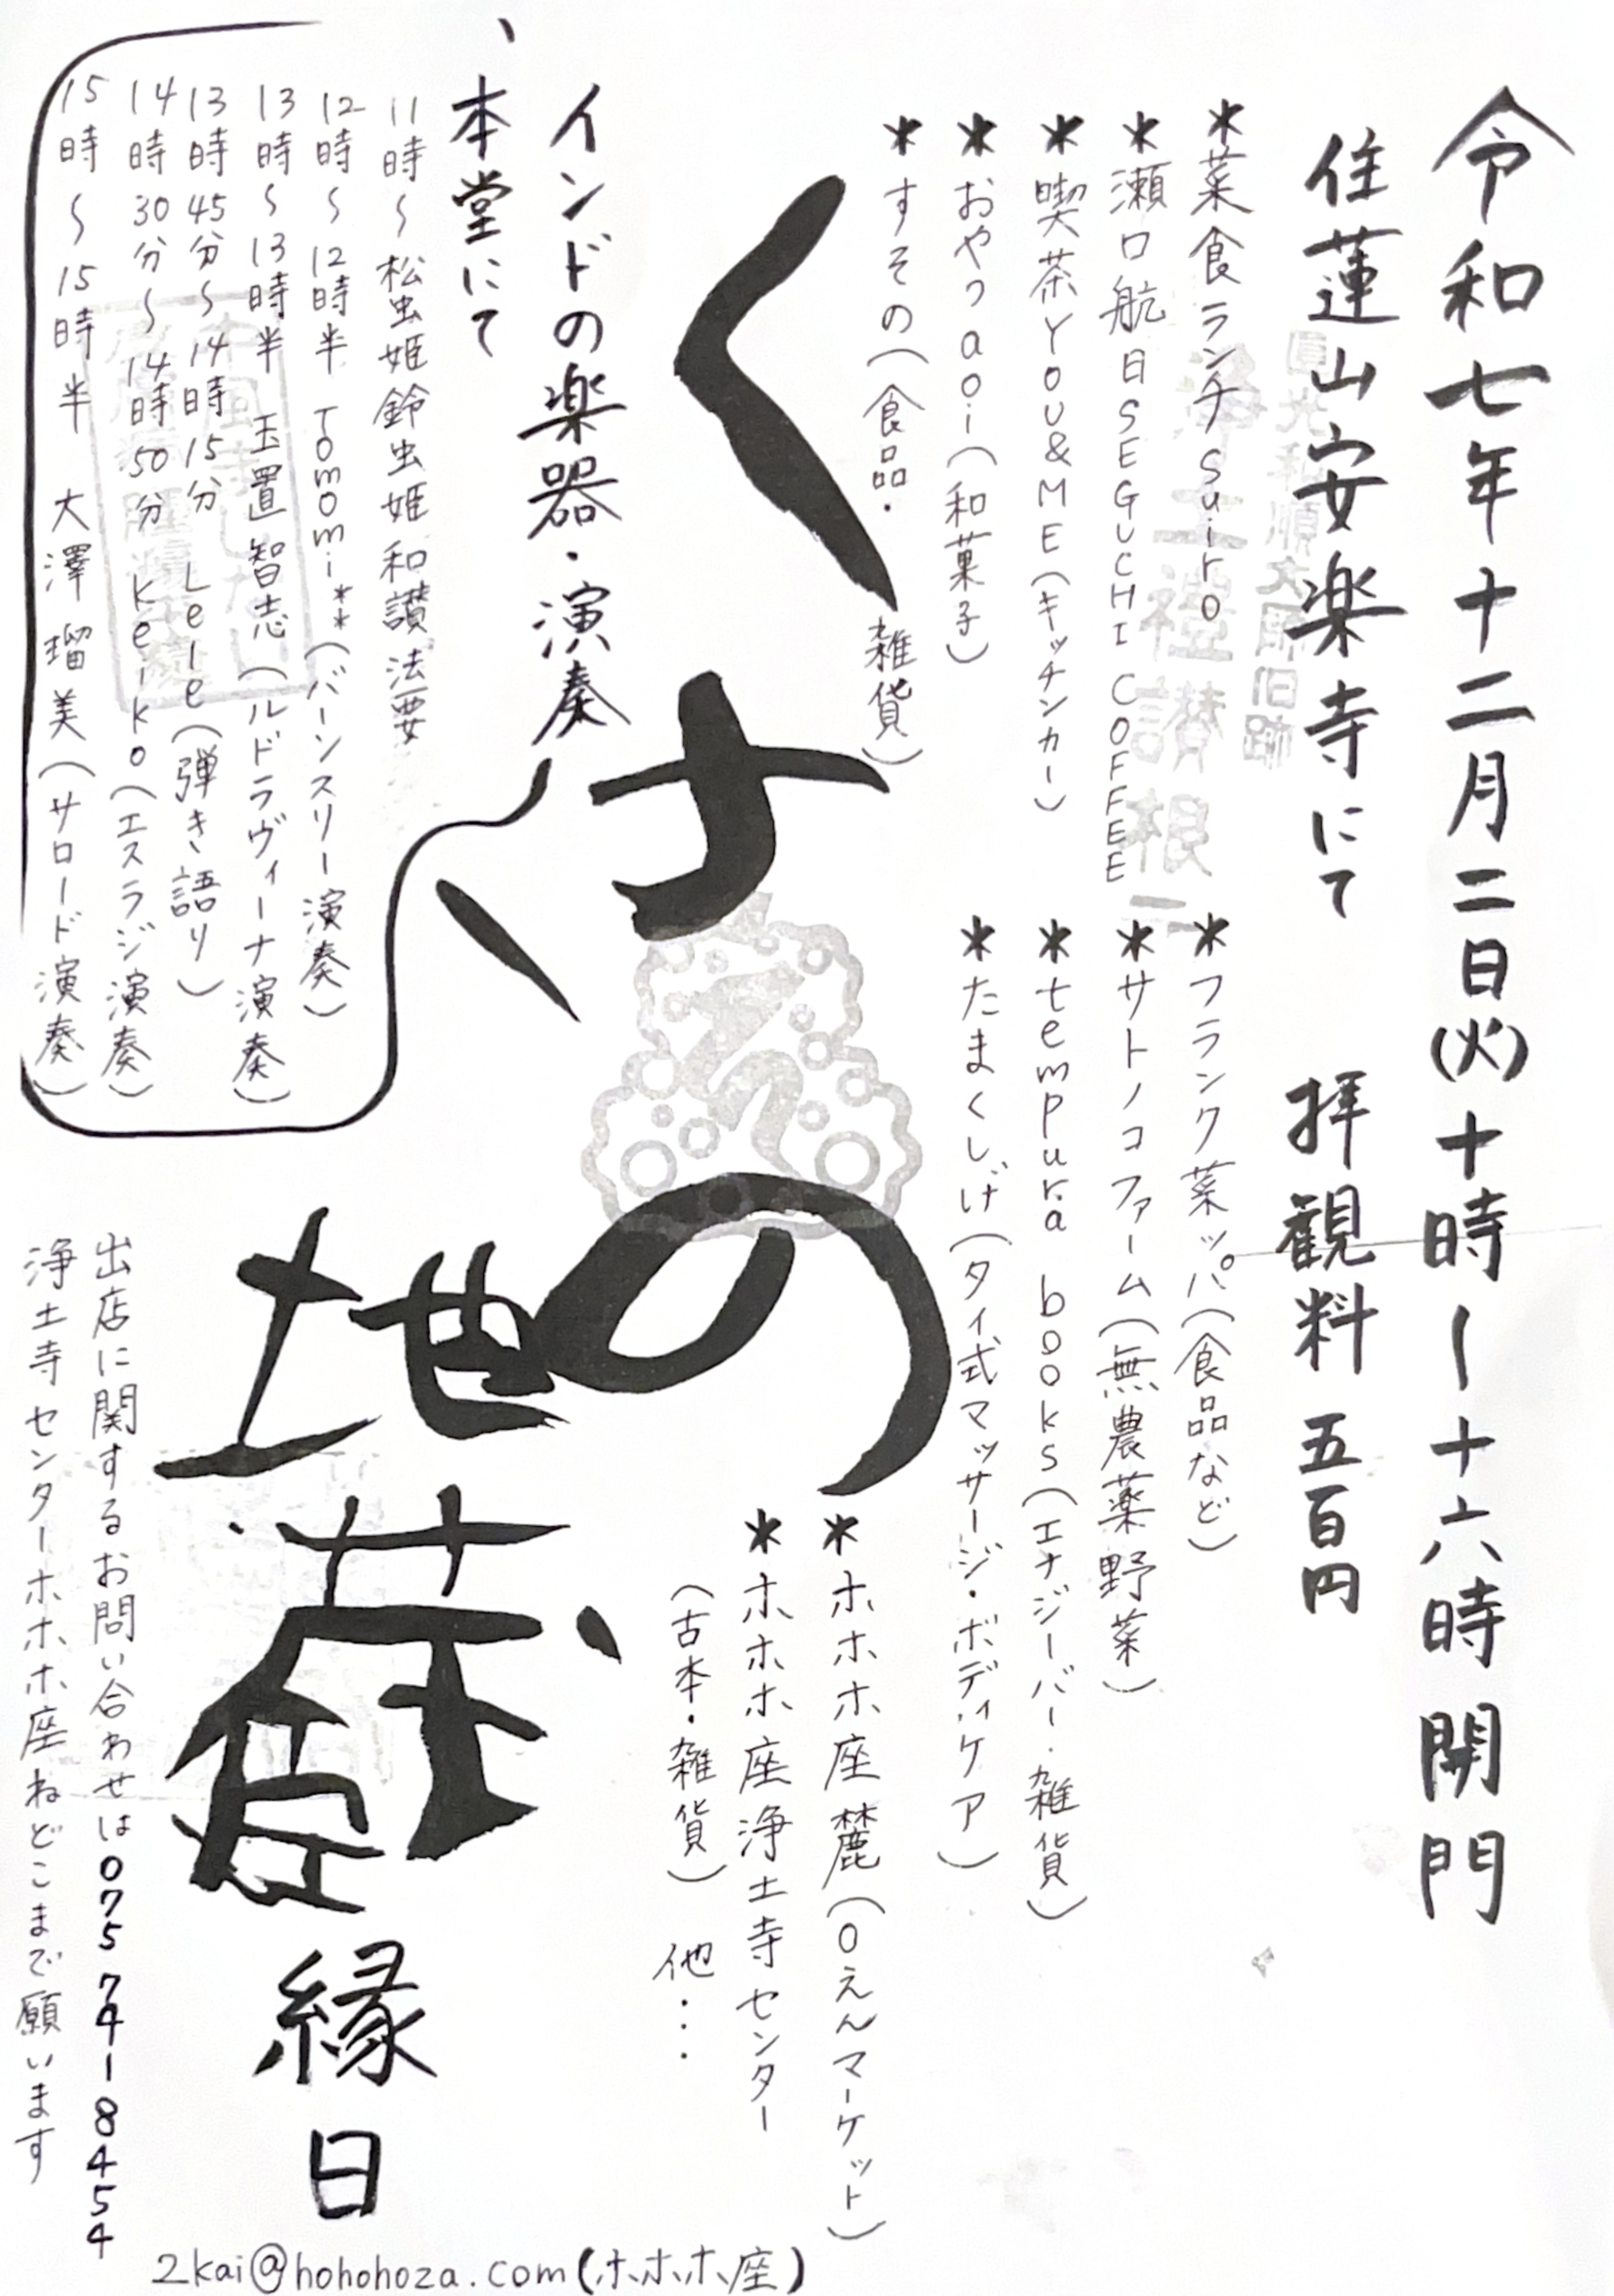 令和七年十二月二日(火)十時〜十六時開門
住蓮山安楽寺にて 拝観料 五百円
*菜食ランチ Suiro
*瀬口航日SEGUCHI COFFEE
*喫茶YOU&ME(キッチンカー)
*おやつaoi(和菓子)
*すその(食品・雑貨)
*フランク菜ッパ(食品など)
*サトノコファーム(無農薬野菜)
*tempura books(エナジーバー・雑貨)
*たまくしげ(タイ式マッサージ・ボディケア)
*ホホホ座麓(0えんマーケット)
*ホホホ座浄土寺センター
(古本・雑貨) 他・・・
くさの地蔵縁日
インドの楽器・演奏
本堂にて
11時〜松虫姫鈴虫姫和讃法要
12時〜12時半 Tomomi**(バーンスリー演奏)
13時〜13時半 玉置智志(ルドラヴィーナ演奏)
13時45分〜14時15分 Lele(弾き語り)
14時30分〜14時50分 Keiko(エスラジ演奏)
15時〜15時半 大澤瑠美(サロード演奏)
出店に関するお問い合わせは075 741-8454
浄土寺センターホホホ座ねどこまで願います
2kai@hohohoza.com(ホホホ座)
圓光和順大師旧跡
浄土禮讃根